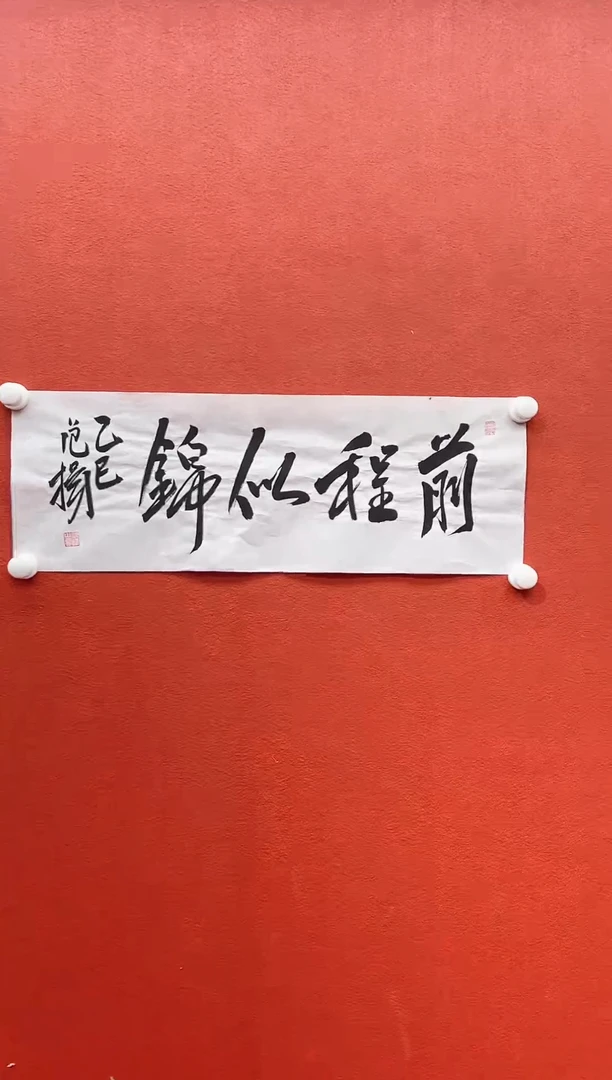 前程似錦
乙巳
范揚